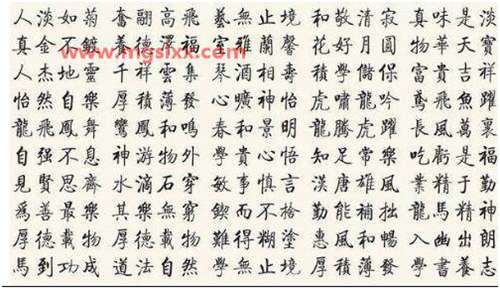 人淡如菊 奮翮高飛 藝無止境 和敬清寂 真味是淡
www.mgslxx.com
真金不鍍 養德澤福 室雅蘭馨 花好月圓 物華天寶
人杰地靈 千祥雲集 琴酒相壽 學儲保 富貴吉祥
怡然自樂 厚積薄發 心曠神怡 虎嘯龍吟 鳶飛魚躍
龍飛鳳舞 鸞鳳和鳴 春和景明 龍騰虎躍 長風萬裏
自强不息 神游物外 學貴心悟 知足常樂 吃虧是福
見賢思齊 水滴石穿 敏事慎言 漢唐雄風 業精于勤
爲善最樂 其樂無窮 鍥而不捨 勤能補拙 龍馬精神
厚德載物 厚德載物 難得糊塗 惠風和暢 入幽出朗
馬到功成 道法自然 學無止境 厚積薄發 學書養志